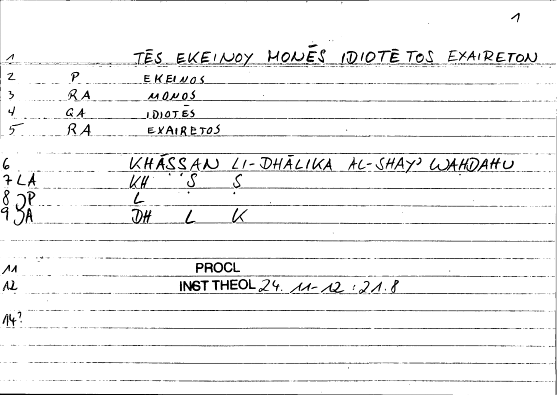 1
1 TĒS EKEINOY MONĒS IDIOTĒTOS EXAIRETON
2 P EKEINOS
3 RA MONOS
4 GA IDIOTĒS
5 RA EXAIRETOS
6 KHĀṢṢAN LI-DHĀLIKA AL-SHAYʾ WAḤDAHU
7 LA KH Ṣ Ṣ
8 JP L
9 JA DH L K
11 PROCL
12 INST THEOL 24. 11-12 : 21.8
14?